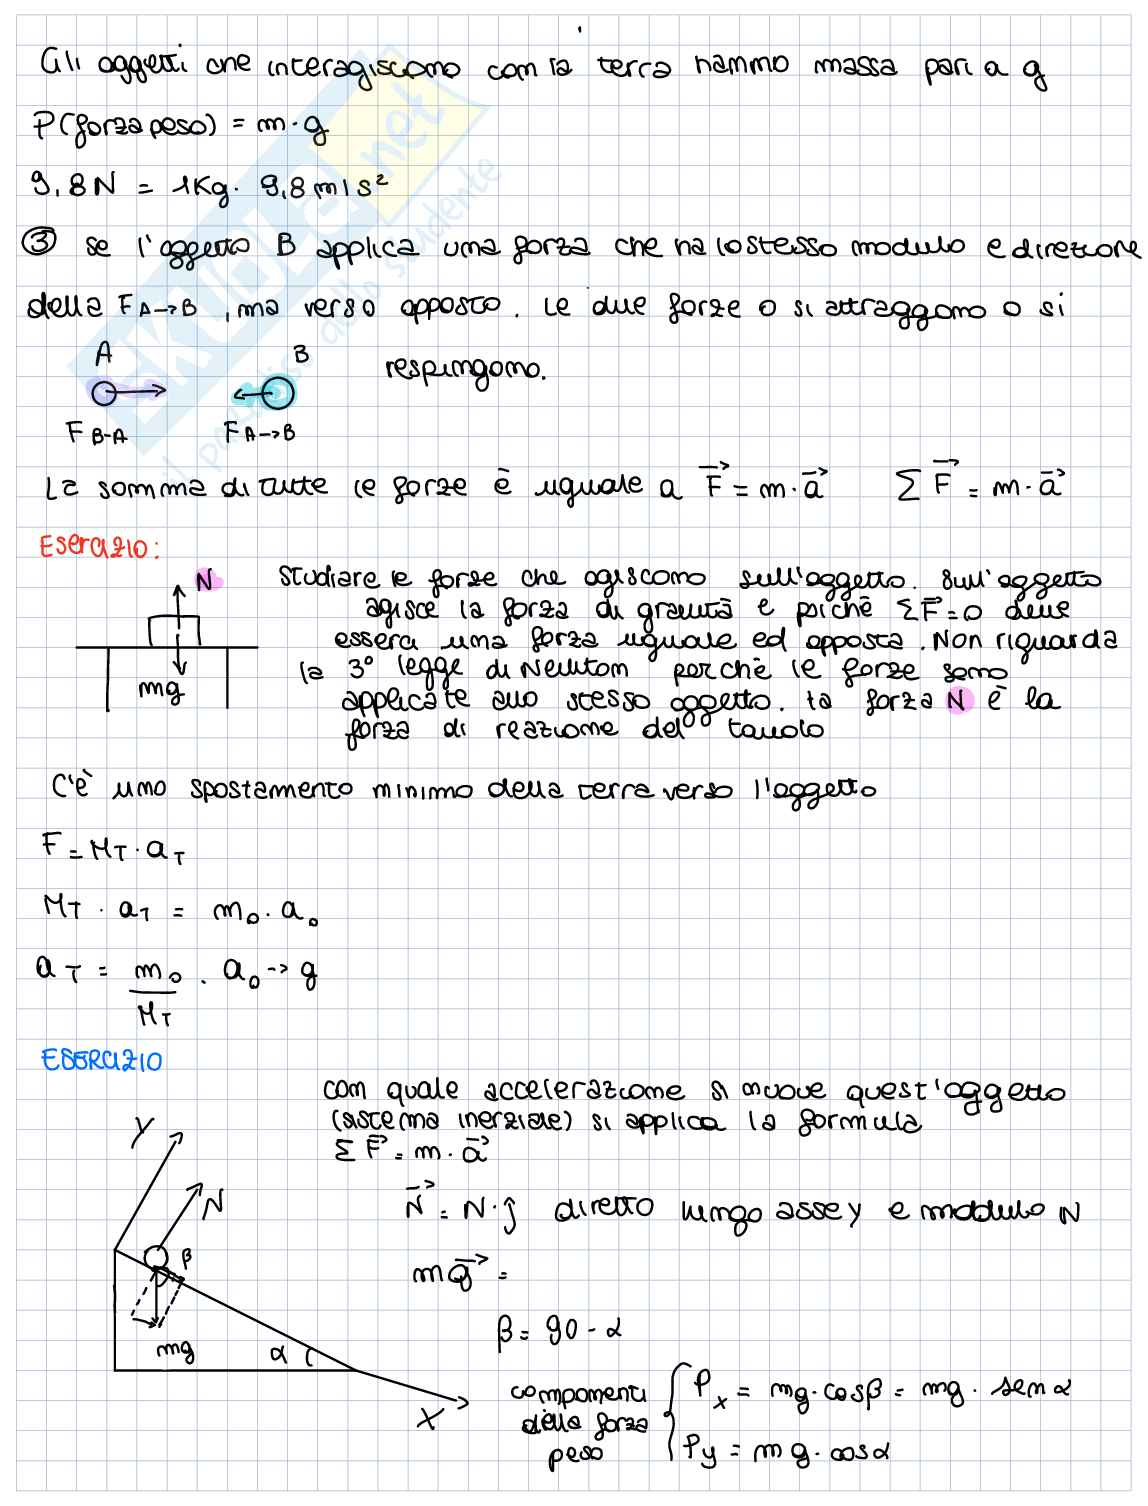 Gli oggetti che interagiscono con la terra hanno massa pari a g
P(forza peso) = m · g
9,8 N = 1Kg · 9,8 m/s²
③ se l'oggetto B applica una forza che ha lo stesso modulo e direzione
della F A→B, ma verso opposto. Le due forze o si attraggono o si
respingono.
A B
F B-A F A→B
La somma di tutte le forze è uguale a F⃗ = m · a⃗ Σ F⃗ = m · a⃗
Esercizio:
N
mg
studiare le forze che agiscono sull'oggetto. Sull'oggetto
agisce la forza di gravità e poiché ΣF⃗=0 deve
esserci una forza uguale ed opposta. Non riguarda
la 3° legge di Newton perché le forze sono
applicate allo stesso oggetto. La forza N è la
forza di reazione del tavolo
C'è uno spostamento minimo della terra verso l'oggetto
F = M_T · a_T
M_T · a_T = m_o · a_o
a_T = m_o / M_T · a_o → g
ESERCIZIO
con quale accelerazione si muove quest'oggetto
(sistema inerziale) si applica la formula
Σ F⃗ = m · a⃗
Y
N
β
mg
α
X
N⃗ = N · j diretto lungo asse y e modulo N
mg⃗ =
β = 90 - α
componenti
della forza
peso
P_x = mg · cosβ = mg · sen α
P_y = mg · cosα
skuola.net
il paradiso dello studente